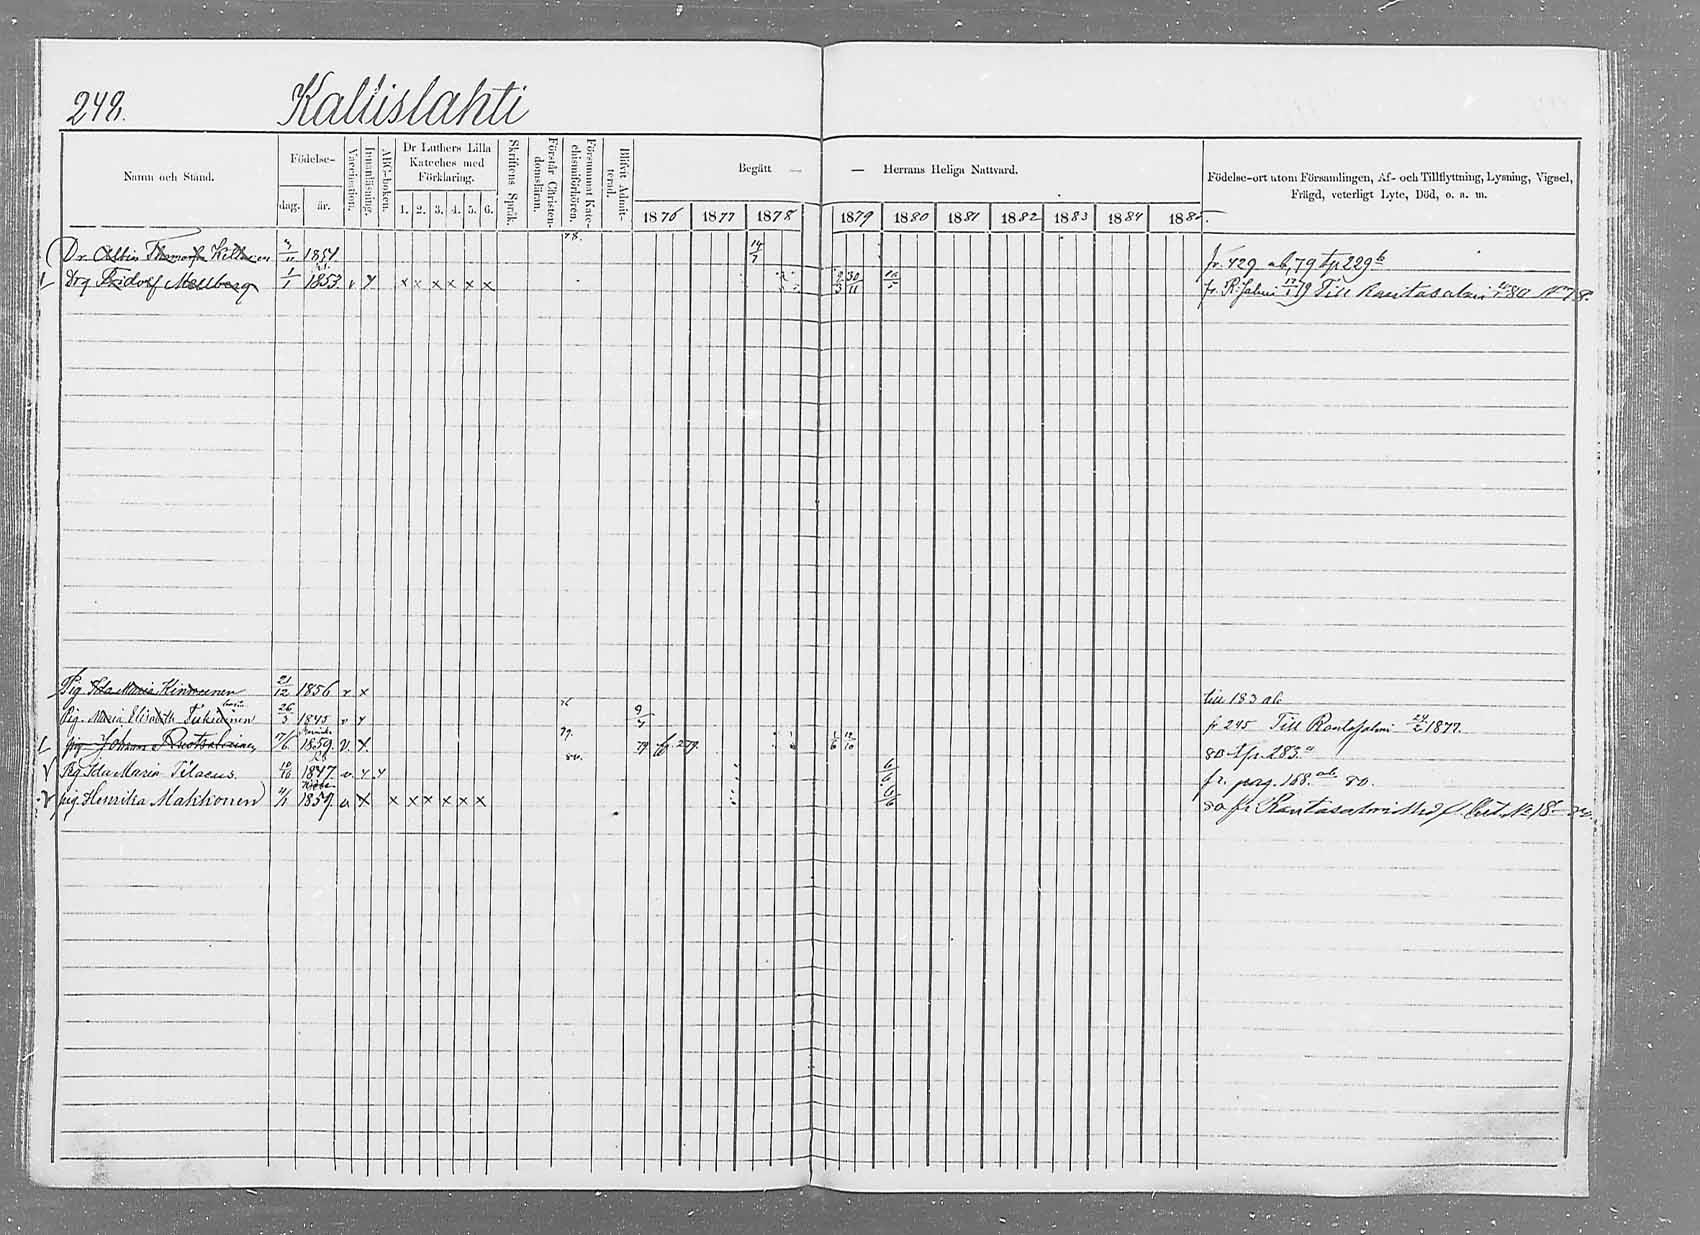 248.
Kallislahti
Namn och Stånd.
Födelse-
dag. år.
Vaccination.
Innanläsning.
ABC-boken.
Dr Luthers Lilla
Kateches med
Förklaring.
1. 2. 3. 4. 5. 6.
Skriftens Språk.
Förstår Christen-
domsläran.
Försummat Kate-
chismiförhören.
Blifvit Admit-
terad.
Begått — — Herrans Heliga Nattvard.
1876 1877 1878 1879 1880 1881 1882 1883 1884 1885
Födelse-ort utom Församlingen, Af- och Tillflyttning, Lysning, Vigsel,
Frägd, veterligt Lyte, Död, o. a. m.
Dr Albin 1851 78. 14/7 fr. 429 ab, 79 tp 229 b
Drg Fridolf Mellberg 1/1 1853 v y x x x x x x 30/11 fr. R:Salmi Till Rantasalmi 80 N 78.
Pig Ida Maria Hinnunen 21/12 1856 v x till 183 ab
Pig. Maria Elisabeth 26/3 1845 v y 76 9/7 fr 245 Till Rantasalmi 24/2 1877.
pig Johanna Ruotsalainen 17/6 1859. v. x 79. 79 fr. 279. 12/10 80 tp. 283 a
Pig Ida Maria Tilaeus. 10/10 1847 v. y y 80. 6/6 fr. pag. 168. ab. 80.
pig. Henrika Makkonen 1859. v x x x x x x x 6/6 80 fr Rantasalmi med N 18